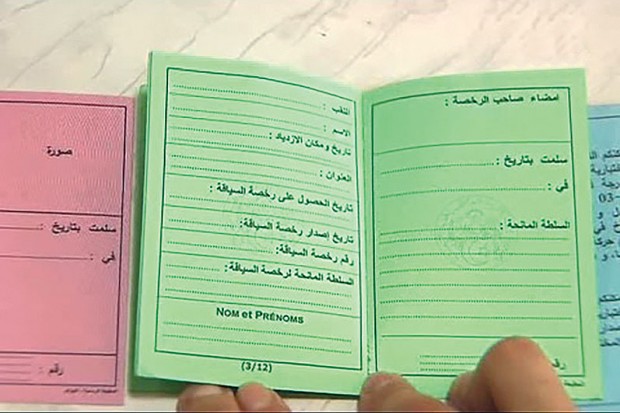 امضاء صاحب الرخصة :
سلمت بتاريخ :
في :
السلطة المانحة :
رقم :
اللقب :
الاسم :
تاريخ ومكان الازدياد :
العنوان :
تاريخ الحصول على رخصة السياقة :
تاريخ إصدار رخصة السياقة:
رقم رخصة السياقة:
السلطة المانحة لرخصة السياقة :
NOM et PRÉNOMS
(3/12)
صورة
سلمت بتاريخ :
في :
رقم :